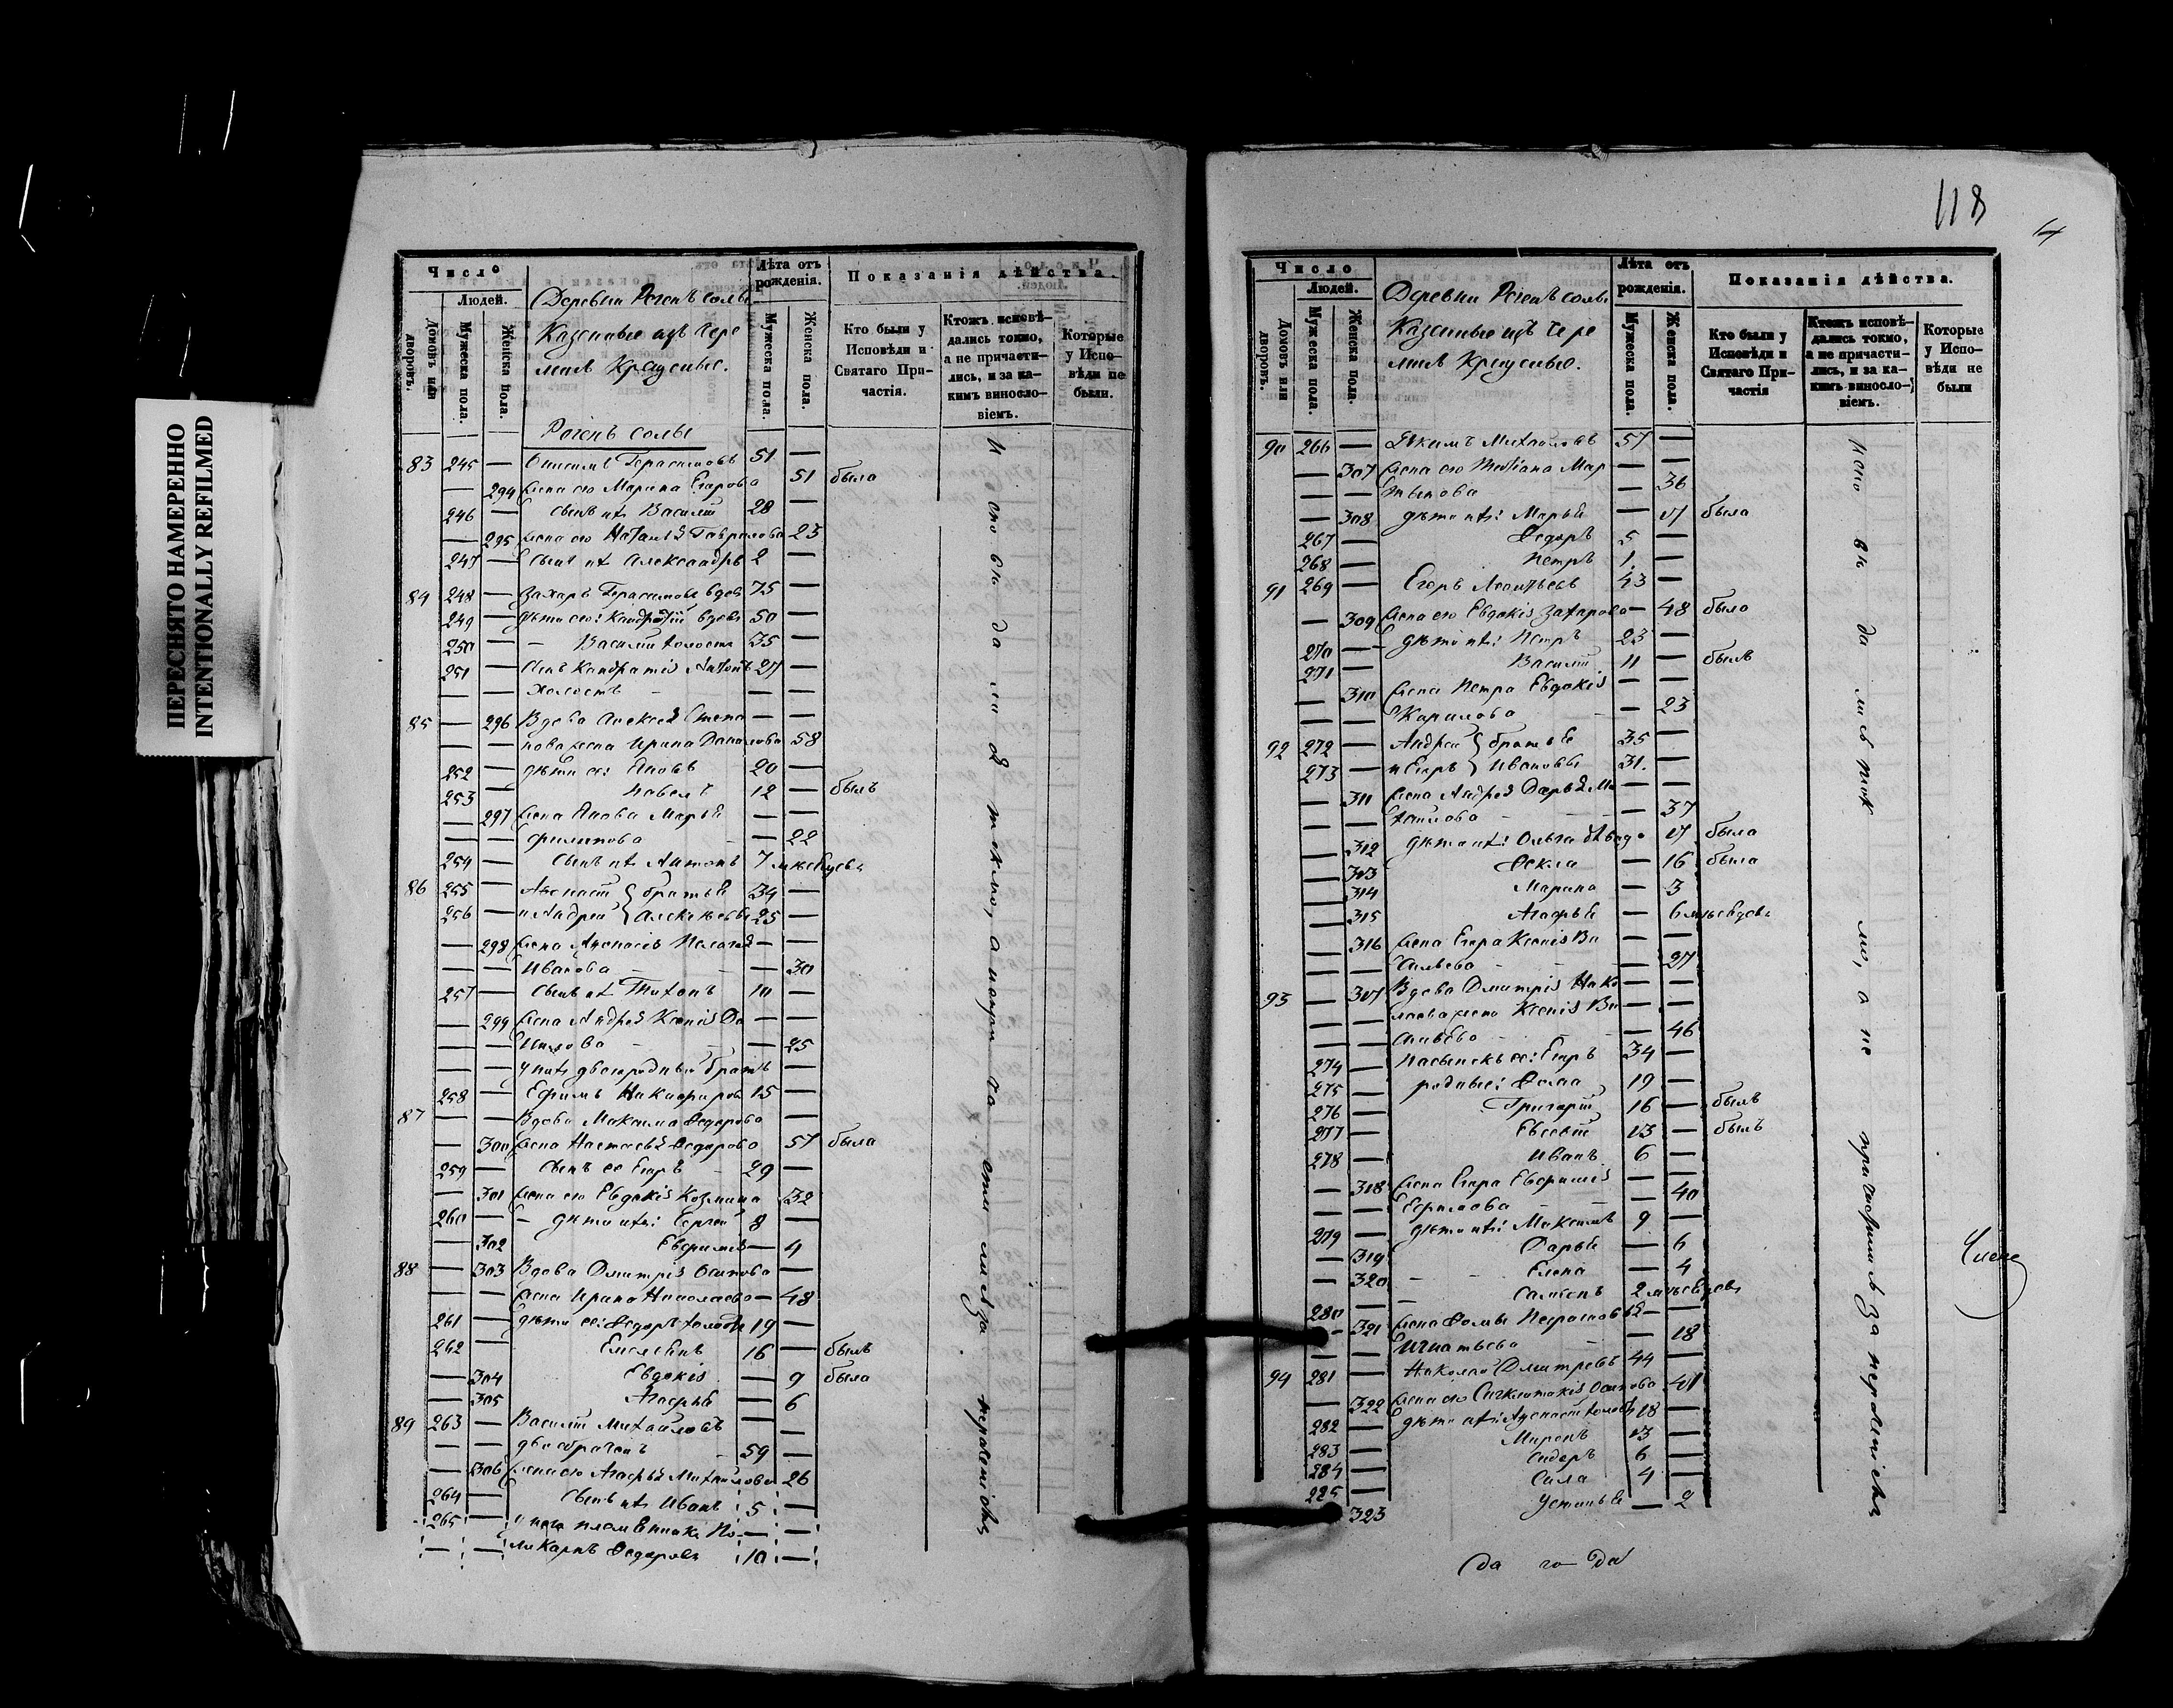 ПЕРЕСНЯТО НАМЕРЕННО
INTENTIONALLY REFILMED
Число
Людей.
Домовъ или дворовъ.
Мужеска пола.
Женска пола.
Деревни Рогенъ солы
Казенные изъ чере
мисъ Крещеные.
Лѣта отъ рожденія.
Мужеска пола.
Женска пола.
Показанія дѣйства.
Кто были у Исповѣди и Святаго Причастія.
Ктожъ исповѣдались токмо, а не причастились, и за какимъ винословіемъ.
Которые у Исповѣди не были.
Рогенъ солы
83 245 — Онисимъ Герасимовъ 51 —
— 294 Жена его Марина Егорова 51 была
246 — сынъ ихъ Василій 28 —
— 295 Жена его Гаврилова 23
247 — Сынъ ихъ Александръ 2 —
84 248 — Захаръ Герасимовъ вдовъ 75 —
249 — Дѣти его: Кандратій вдовъ 50 —
250 — Василій холостъ 35 —
251 — Сынъ Кандратія 27 —
— — холостъ — —
85 — 296 Вдова Алексея Степа — —
— — нова жена Ирина 58
252 — дѣти ее: Яковъ 20 —
253 — Павелъ 12 — былъ
— 297 Жена Якова Марья — —
— — Филипова — 22
254 — Сынъ ихъ Антонъ 7 мѣсяцевъ
86 255 — Афонасій } братья 34 —
256 — и Андрей } Алексѣевы 25 —
— 298 Жена Афонасія Пелагея — —
— — Иванова — 30
257 — Сынъ ихъ Тихонъ 10 —
— 299 Жена Андрея Ксенія Да — —
— — нилова — 25
— — у нихъ двоюродный братъ — —
258 — Ефимъ Никифоровъ 15 —
87 — — Вдова Максима Федорова —
— 300 Жена Настасья Федорова 57 была
259 — сынъ ее Егоръ 29 —
— 301 Жена его Евдокія Козмина 32
260 — дѣти ихъ: Сергей 8 —
— 302 Евфимія — 4
88 — 303 Вдова Дмитрія Осипова —
— — Жена Ирина Николаева — 48
261 — дѣти ее: Федоръ холостъ 19 —
262 — Емельянъ 16 — былъ
— 304 Евдокія — 9 была
— 305 Агафья — 6
89 263 — Василій Михайловъ — —
— — двоебраченъ 59 —
— 306 Жена его Агафья Михайлова 26
264 — Сынъ ихъ Иванъ 5 —
265 — у него племянникъ По — —
— — ликарпъ Федоровъ 10 —
118
Число
Людей.
Домовъ или дворовъ.
Мужеска пола.
Женска пола.
Деревни Рогенъ солы
Казенные изъ чере
мисъ Крещеные.
Лѣта отъ рожденія.
Мужеска пола.
Женска пола.
Показанія дѣйства.
Кто были у Исповѣди и Святаго Причастія
Ктожъ исповѣдались токмо, а не причастились, и за какимъ винословіемъ.
Которые у Исповѣди не были
90 266 — Екимъ Михайловъ 57 —
— 307 Жена его Татіана Мар —
— — тынова — 36
— 308 дѣти ихъ: Марья — 17 была
267 — Федоръ 5 —
268 — Петръ 1 —
91 269 — Егоръ Леонтьевъ 43 —
— 309 Жена его Евдокія Захарова — 48 была
270 — дѣти ихъ: Петръ 23 —
271 — Василій 11 — былъ
— 310 Жена Петра Евдокія — —
— — Карилова — 23
92 272 — Андрей } братья 35 —
273 — и Егоръ } Ивановы 31. —
— 311 Жена Андрея Дарья Ми — —
— — хаилова — 37
— 312 дѣти ихъ: Ольга 17 была
— 313 Фекла — 16 была
— 314 Марина — 3
— 315 Агафья — 6 мѣсяцовъ
— 316 Жена Егора Ксенія Ва — —
— — сильева — 27
93 — 317 Вдова Дмитрія Нико — —
— — лаева жена Ксенія Ва — —
— — сильева — 46
274 — пасынокъ ее: Егоръ 34 —
275 — родные: Фома 19 —
276 — Григорій 16 — былъ
277 — Евсевій 13 — былъ
278 — Иванъ 6 —
— 318 Жена Егора Евфимія —
— — Ефимова — 40
279 — дѣти ихъ: Максимъ 9 —
— 319 Дарья — 6
— 320 Елена — 4
280 — Самсонъ 2 мѣсяцовъ
— 321 Жена Фомы —
— — Игнатьева — 18
94 281 — Николай Дмитревъ 44 —
— 322 Жена его Осипова 41
282 — дѣти ихъ: Афонасій холостъ 18 —
283 — Миронъ 13 —
284 — Сидоръ 6 —
285 — Сила 4 —
323 Устинья — 2
Исповѣдались токмо, а не причастились за нерадѣніемъ